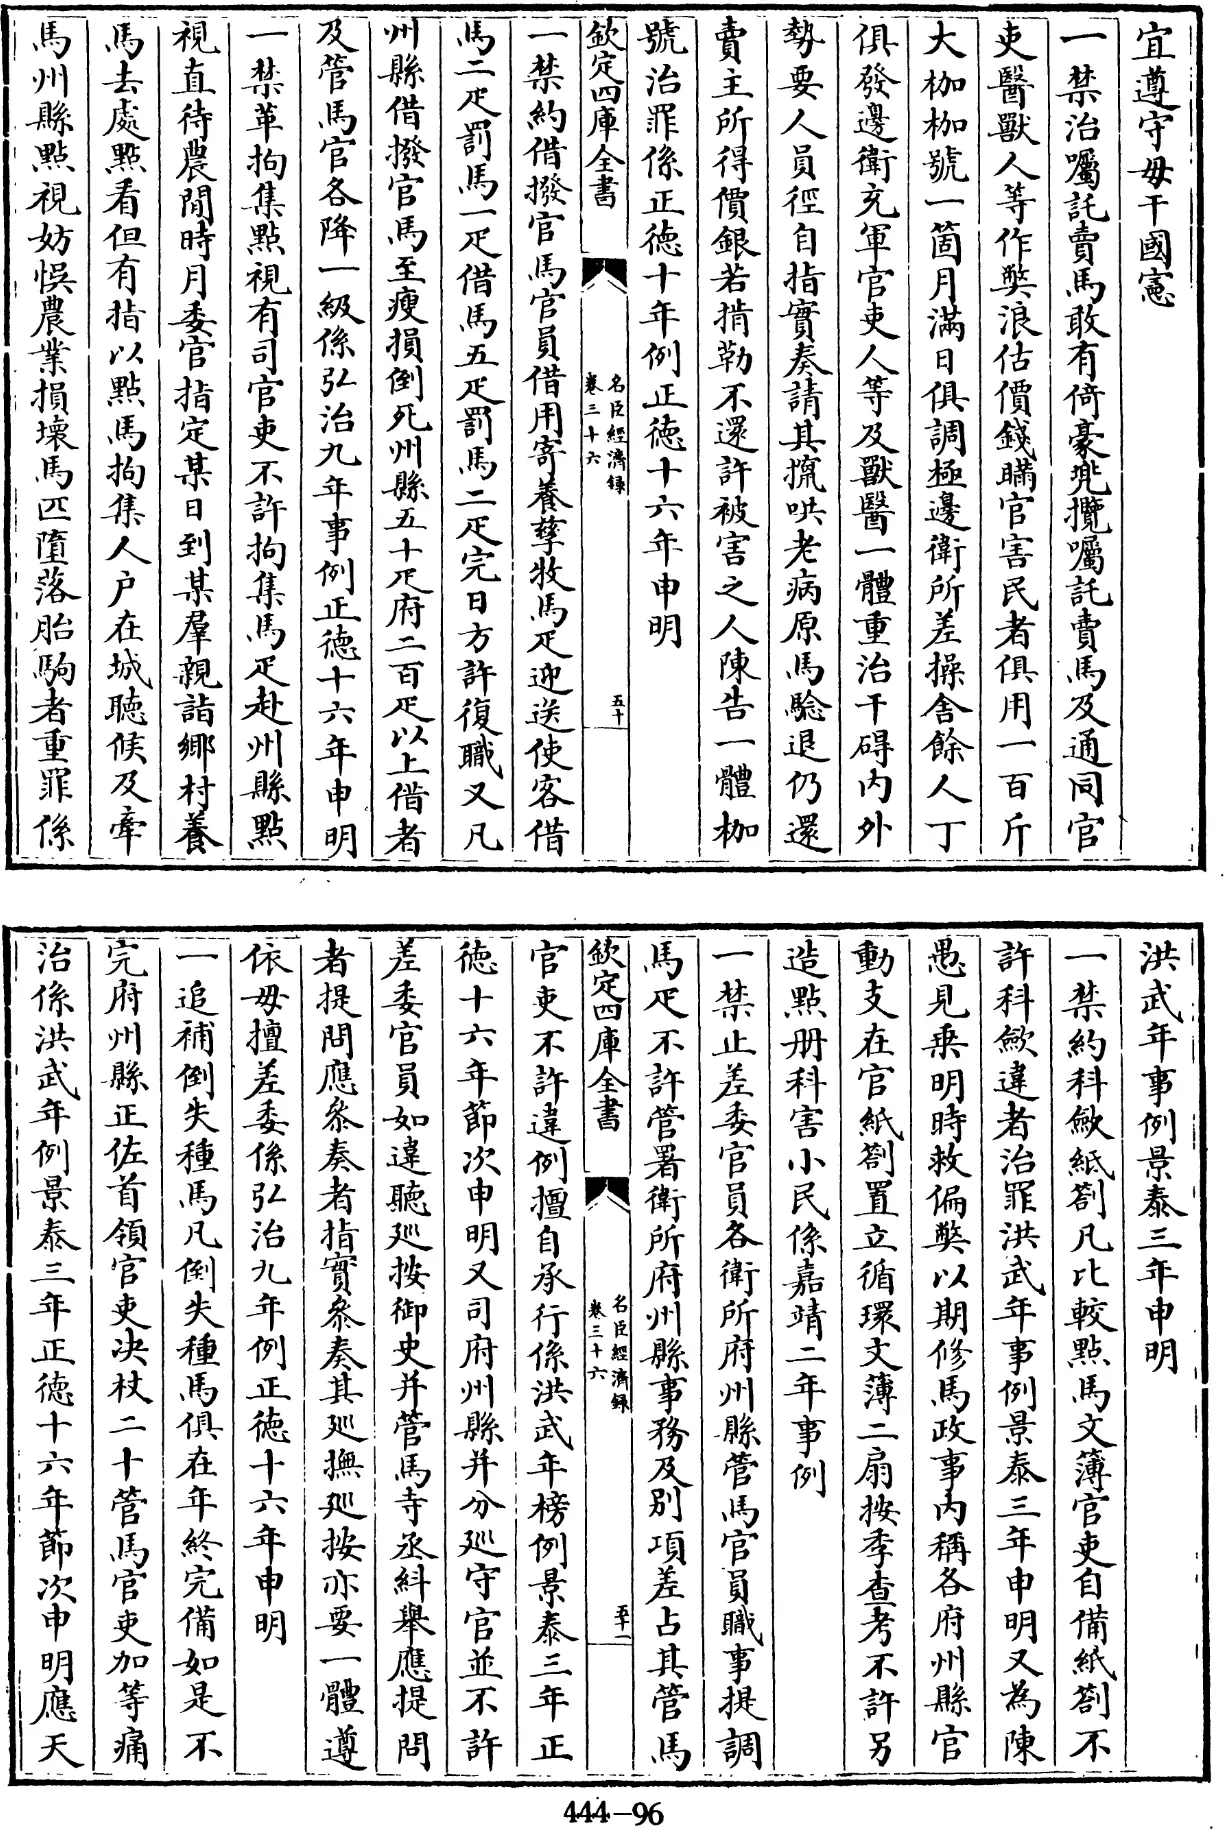 宜遵守毋干國憲
一禁治囑託賣馬敢有倚豪兜攬囑託賣馬及通同官
吏醫獸人等作獘浪估價錢瞞官害民者俱用一百斤
大枷枷號一箇月滿日俱調極邊衛所差操舍餘人丁
俱發邊衛充軍官吏人等及獸醫一體重治干碍内外
勢要人員徑自指實奏請其㨪哄老病原馬驗退仍還
賣主所得價銀若掯勒不還許被害之人陳告一體枷
號治罪係正德十年例正德十六年申明
欽定四庫全書
名臣經濟録
卷三十六
五十
一禁約借撥官馬官員借用寄養孳牧馬疋迎送使客借
馬二疋罰馬一疋借馬五疋罰馬二疋完日方許復職又凡
州縣借撥官馬至瘦損倒死州縣五十疋府二百疋以上借者
及管馬官各降一級係弘治九年事例正德十六年申明
一禁革拘集點視有司官吏不許拘集馬疋赴州縣點
視直待農閒時月委官指定某日到某羣親詣鄉村養
馬去處點看但有指以點馬拘集人户在城聽候及牽
馬州縣點視妨悞農業損壞馬匹墮落胎駒者重罪係
洪武年事例景泰三年申明
一禁約科歛紙劄凡比較點馬文薄官吏自備紙劄不
許科歛違者治罪洪武年事例景泰三年申明又為陳
愚見乗明時救偏獘以期修馬政事内稱各府州縣官
動支在官紙劄置立循環文薄二扇按季查考不許另
造點册科害小民係嘉靖二年事例
一禁止差委官員各衛所府州縣管馬官員職事提調
馬疋不許管署衛所府州縣事務及别項差占其管馬
欽定四庫全書
名臣經濟録
卷三十六
五十一
官吏不許違例擅自承行係洪武年榜例景泰三年正
德十六年節次申明又司府州縣并分廵守官並不許
差委官員如違聽廵按御史并管馬寺丞糾舉應提問
者提問應叅奏者指實叅奏其廵撫廵按亦要一體遵
依毋擅差委係弘治九年例正德十六年申明
一追補倒失種馬凡倒失種馬俱在年終完備如是不
完府州縣正佐首領官吏决杖二十管馬官吏加等痛
治係洪武年例景泰三年正德十六年節次申明應天
444-96